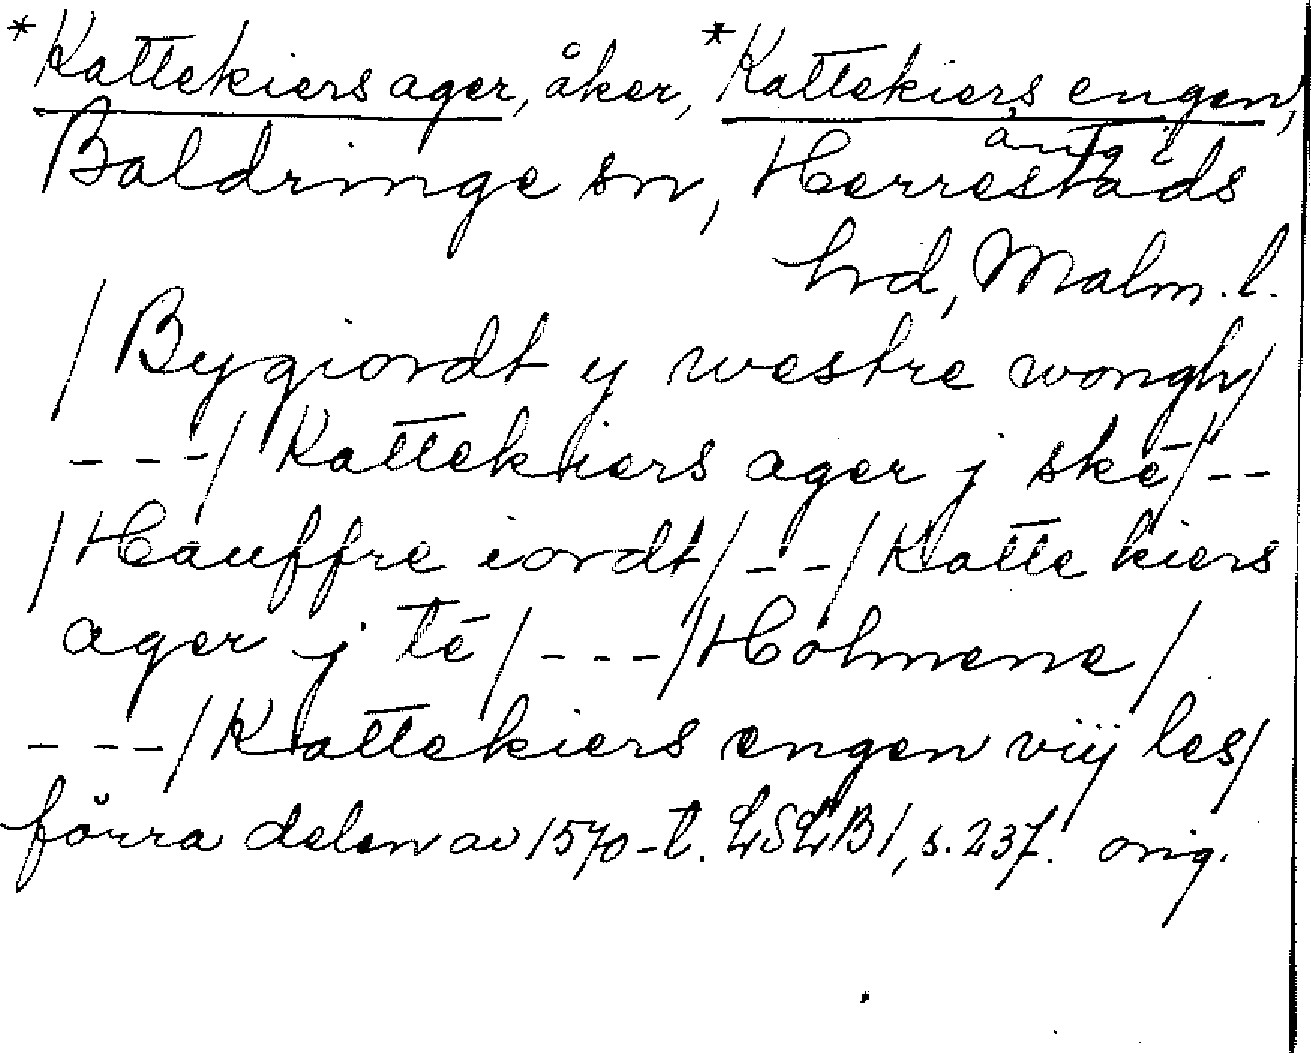 *Kattekiers ager, åker, *Kattekiers engen,
äng i
Baldringe sn, Herrestads
hrd, Malm. l.
/Bygiordt y westre wongh/
---/Kattekiers ager j ske/--
/Hauffre iordt/--/Katte kiers
ager j te/---/Holmene/
---/Kattekiers engen viij les/
förra delen av 1570-t. LSLB 1, s. 237. orig.